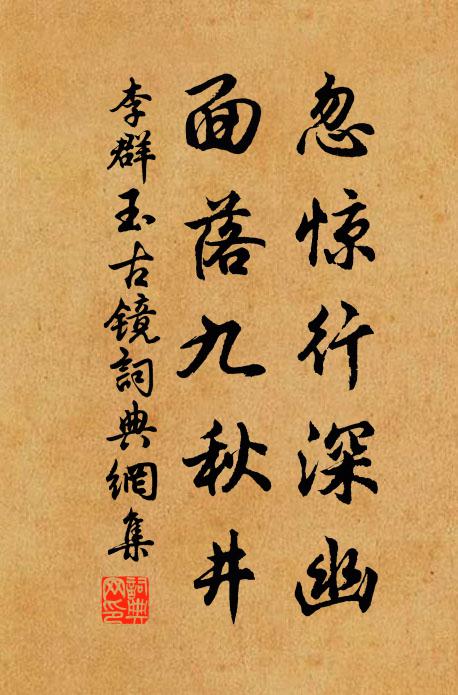 忽惊行深幽
面落九秋井
李群玉古镜詞典網集
詞典网印